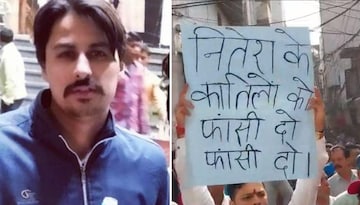 नितेश के
कातिलो को
फांसी दो
फांसी दो।